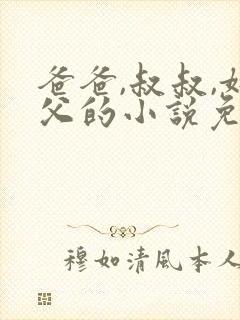 爸爸,叔叔,
父的小說免
穆如清風本人